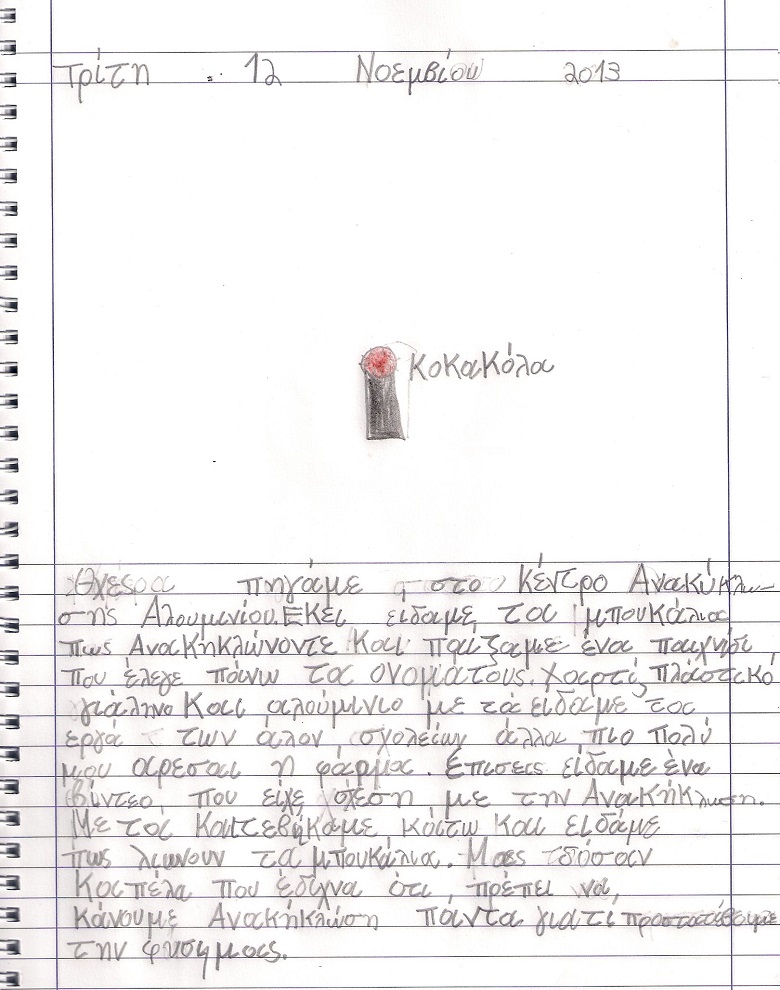 Τρίτη 12 Νοεμβίου 2013
Κοκακόλα
Θχές πηγάμε στο Κέντρο Ανακύκλω
σης Αλουμινίου. Εκει είδαμε τα μπουκάλια
πως Ανακηκλώνοντε και παίζαμε ένα παιχνίδι
που έλεγε πάνω τα ονοματους. χαρτί, πλάστικό
γιάλινο Και αλούμινιο με τά είδαμε τα
εργά των άλον σχολείων άλλα πιο πολύ
μου αρεσαι η φάρμα. Επισεις είδαμε ένα
βίντεο, που είχε σχέση με την Ανακήκλωση.
Με τα Κατεβήκαμε κάτω και είδάμε
πως λιωνουν τα μπουκάλια. Μας δόσαν
Καπέλα που έδιχνα ότι πρέπει να,
κάνουμε Ανακήκλώση πάντα γιατί προστατέβουμε
την φυση μας.